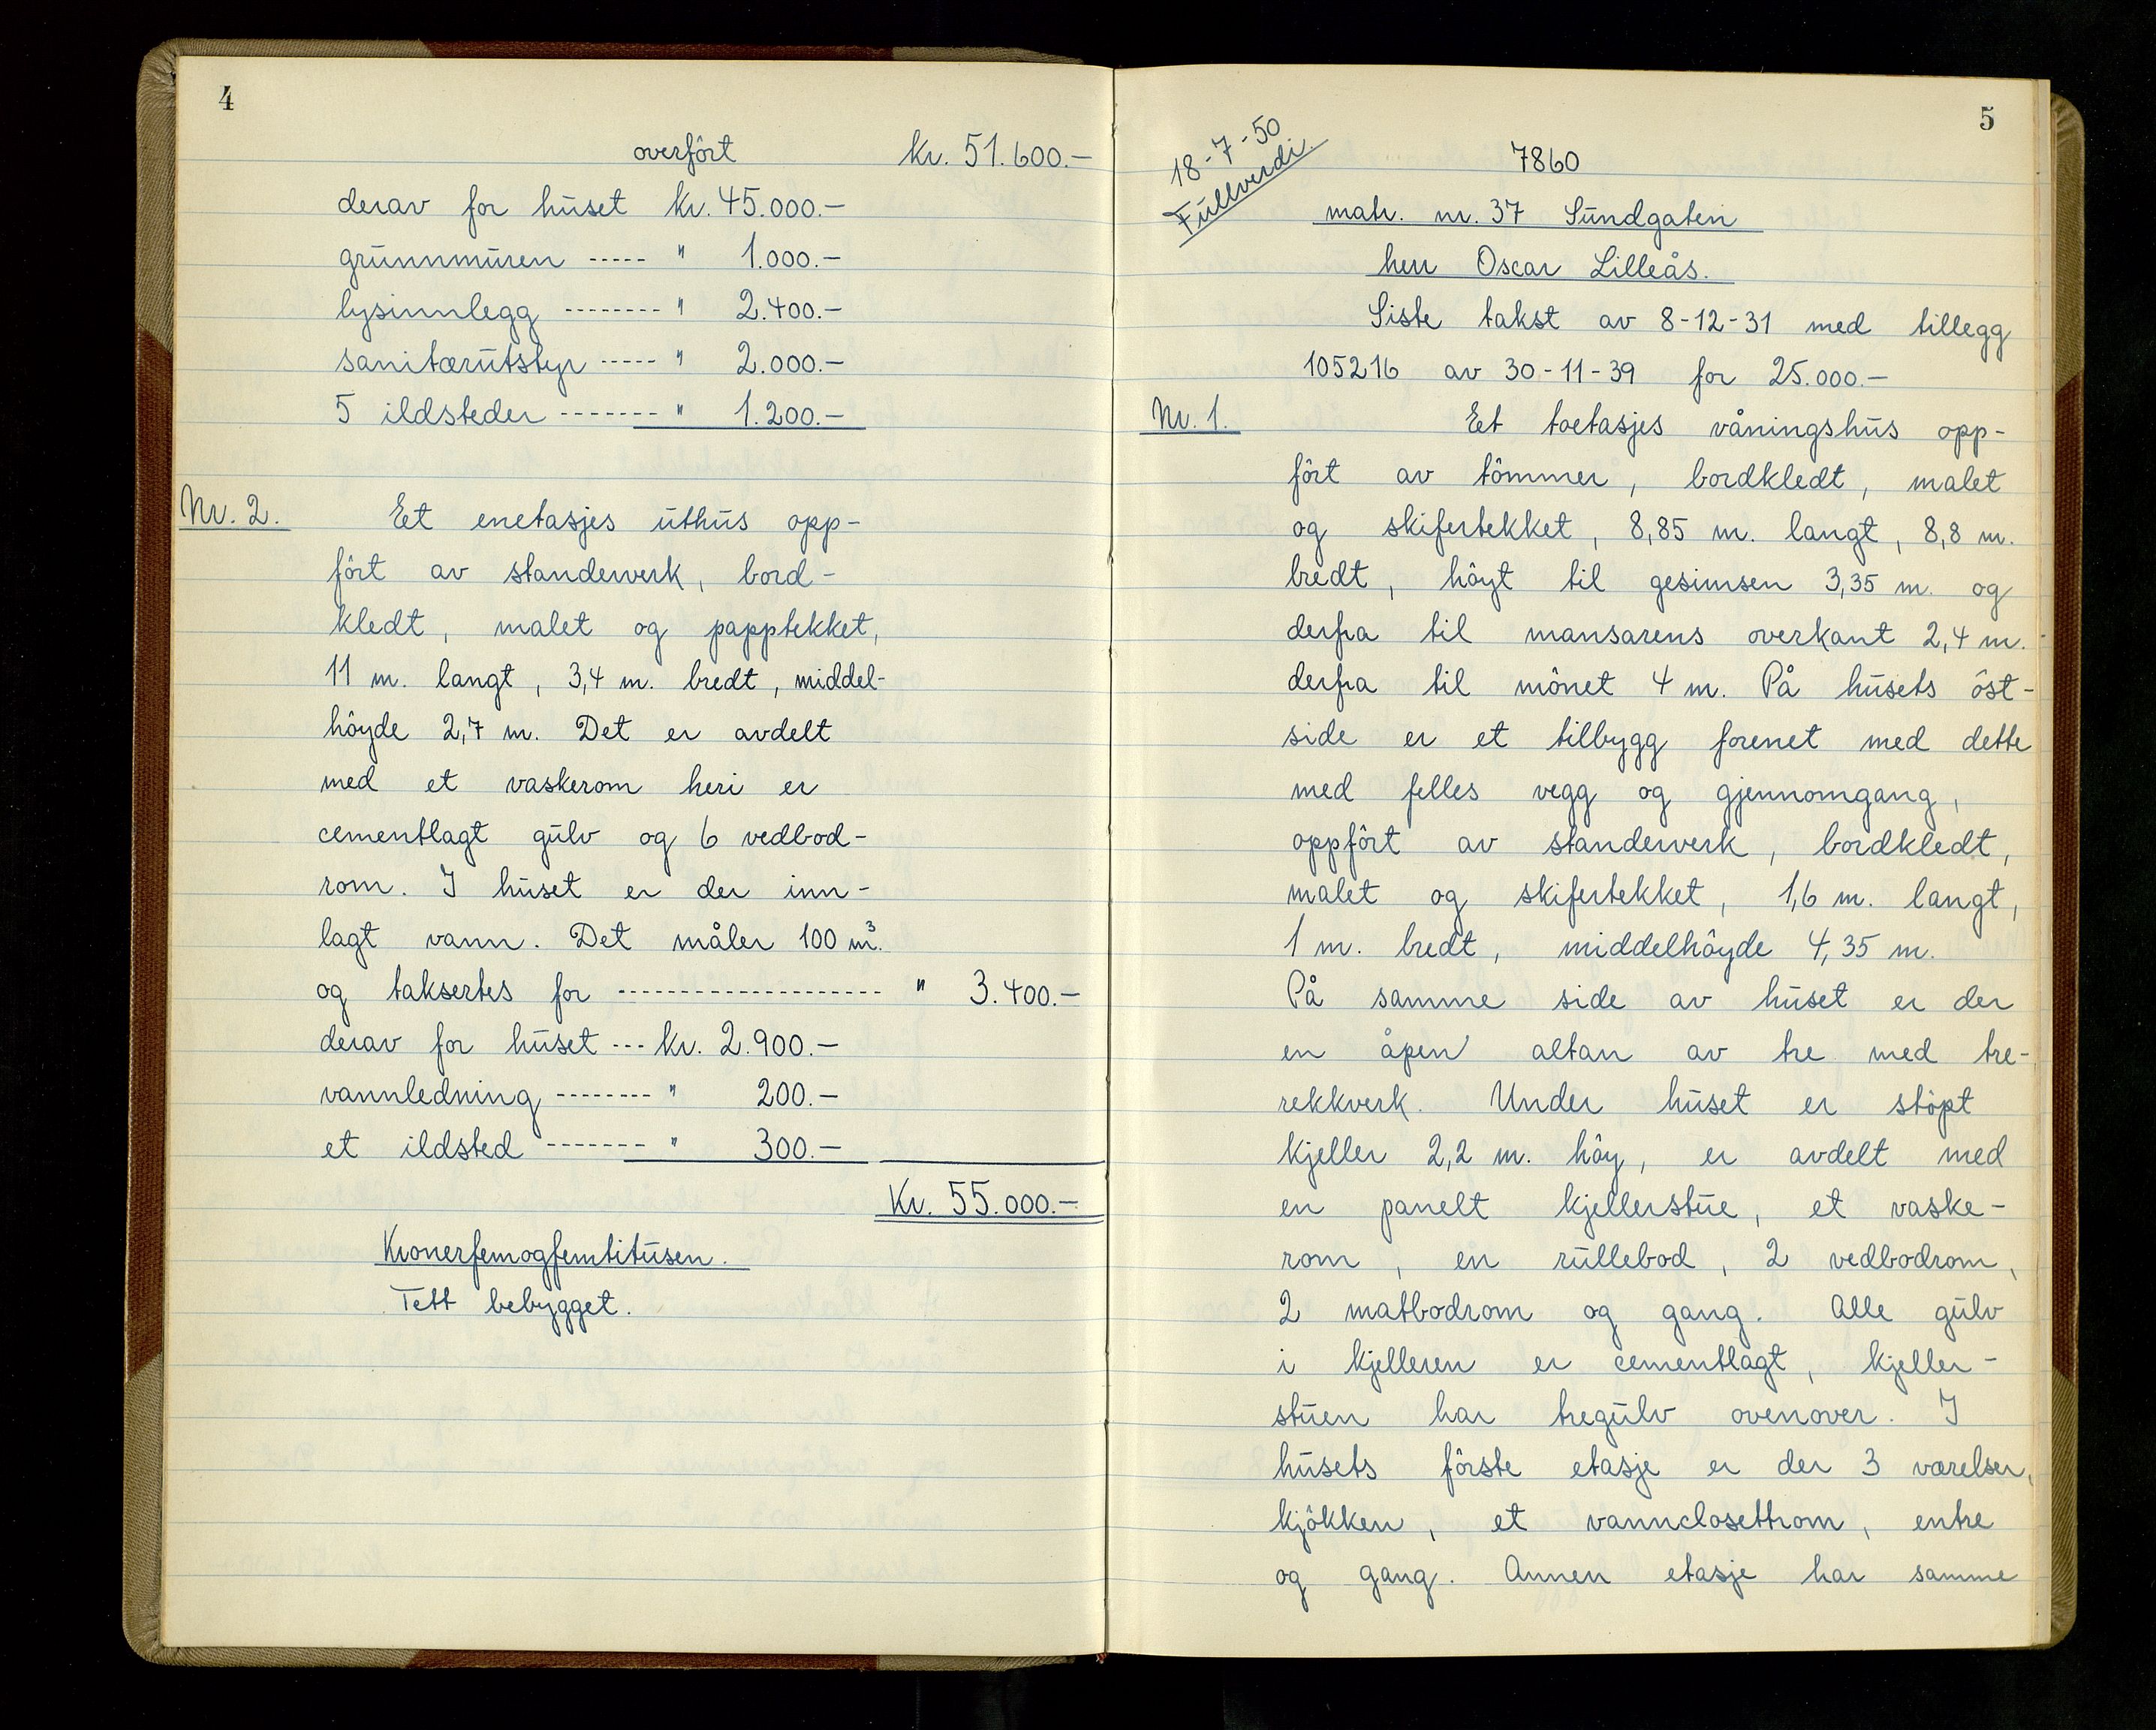 4
overfört kr. 51.600.-
derav for huset kr. 45.000.-
grunnmuren ----- " 1.000.-
lysinnlegg -------- " 2.400.-
sanitærutstyr ----- " 2.000.-
5 ildsteder ------- " 1.200.-
Nr. 2. Et enetasjes uthus opp-
fört av standerverk, bord-
kledt, malet og papptekket,
11 m. langt, 3,4 m. bredt, middel-
höyde 2,7 m. Det er avdelt
med et vaskerom heri er
cementlagt gulv og 6 vedbod-
rom. I huset er der inn-
lagt vann. Det måler 100 m³.
og taksertes for -------------------- " 3.400.-
derav for huset --- kr. 2.900.-
vannledning -------- " 200.-
et ildsted ------- " 300.-
Kr. 55.000.-
Kronerfemogfemtitusen.
Tett bebygget.
5
18-7-50
Fullverdi.
7860
matr. nr. 37 Sundgaten
herr Oscar Lilleås.
Siste takst av 8-12-31 med tillegg
105216 av 30-11-39 for 25.000.-
Nr. 1. Et toetasjes våningshus opp-
fört av tömmer, bordkledt, malet
og skifertekket, 8,85 m. langt, 8,8 m.
bredt, höyt til gesimsen 3,35 m. og
derfra til mansarens overkant 2,4 m.
derfra til mönet 4 m. På husets öst-
side er et tilbygg forenet med dette
med felles vegg og gjennomgang,
oppfört av standerverk, bordkledt,
malet og skifertekket, 1,6 m. langt,
1 m. bredt, middelhöyde 4,35 m.
På samme side av huset er der
en åpen altan av tre med tre-
rekkverk. Under huset er stöpt
kjeller 2,2 m. höy, er avdelt med
en panelt kjellerstue, et vaske-
rom, en rullebod, 2 vedbodrom,
2 matbodrom og gang. Alle gulv
i kjelleren er cementlagt, kjeller-
stuen har tregulv ovenover. I
husets förste etasje er der 3 værelser,
kjökken, et vannclosettrom, entre
og gang. Annen etasje har samme